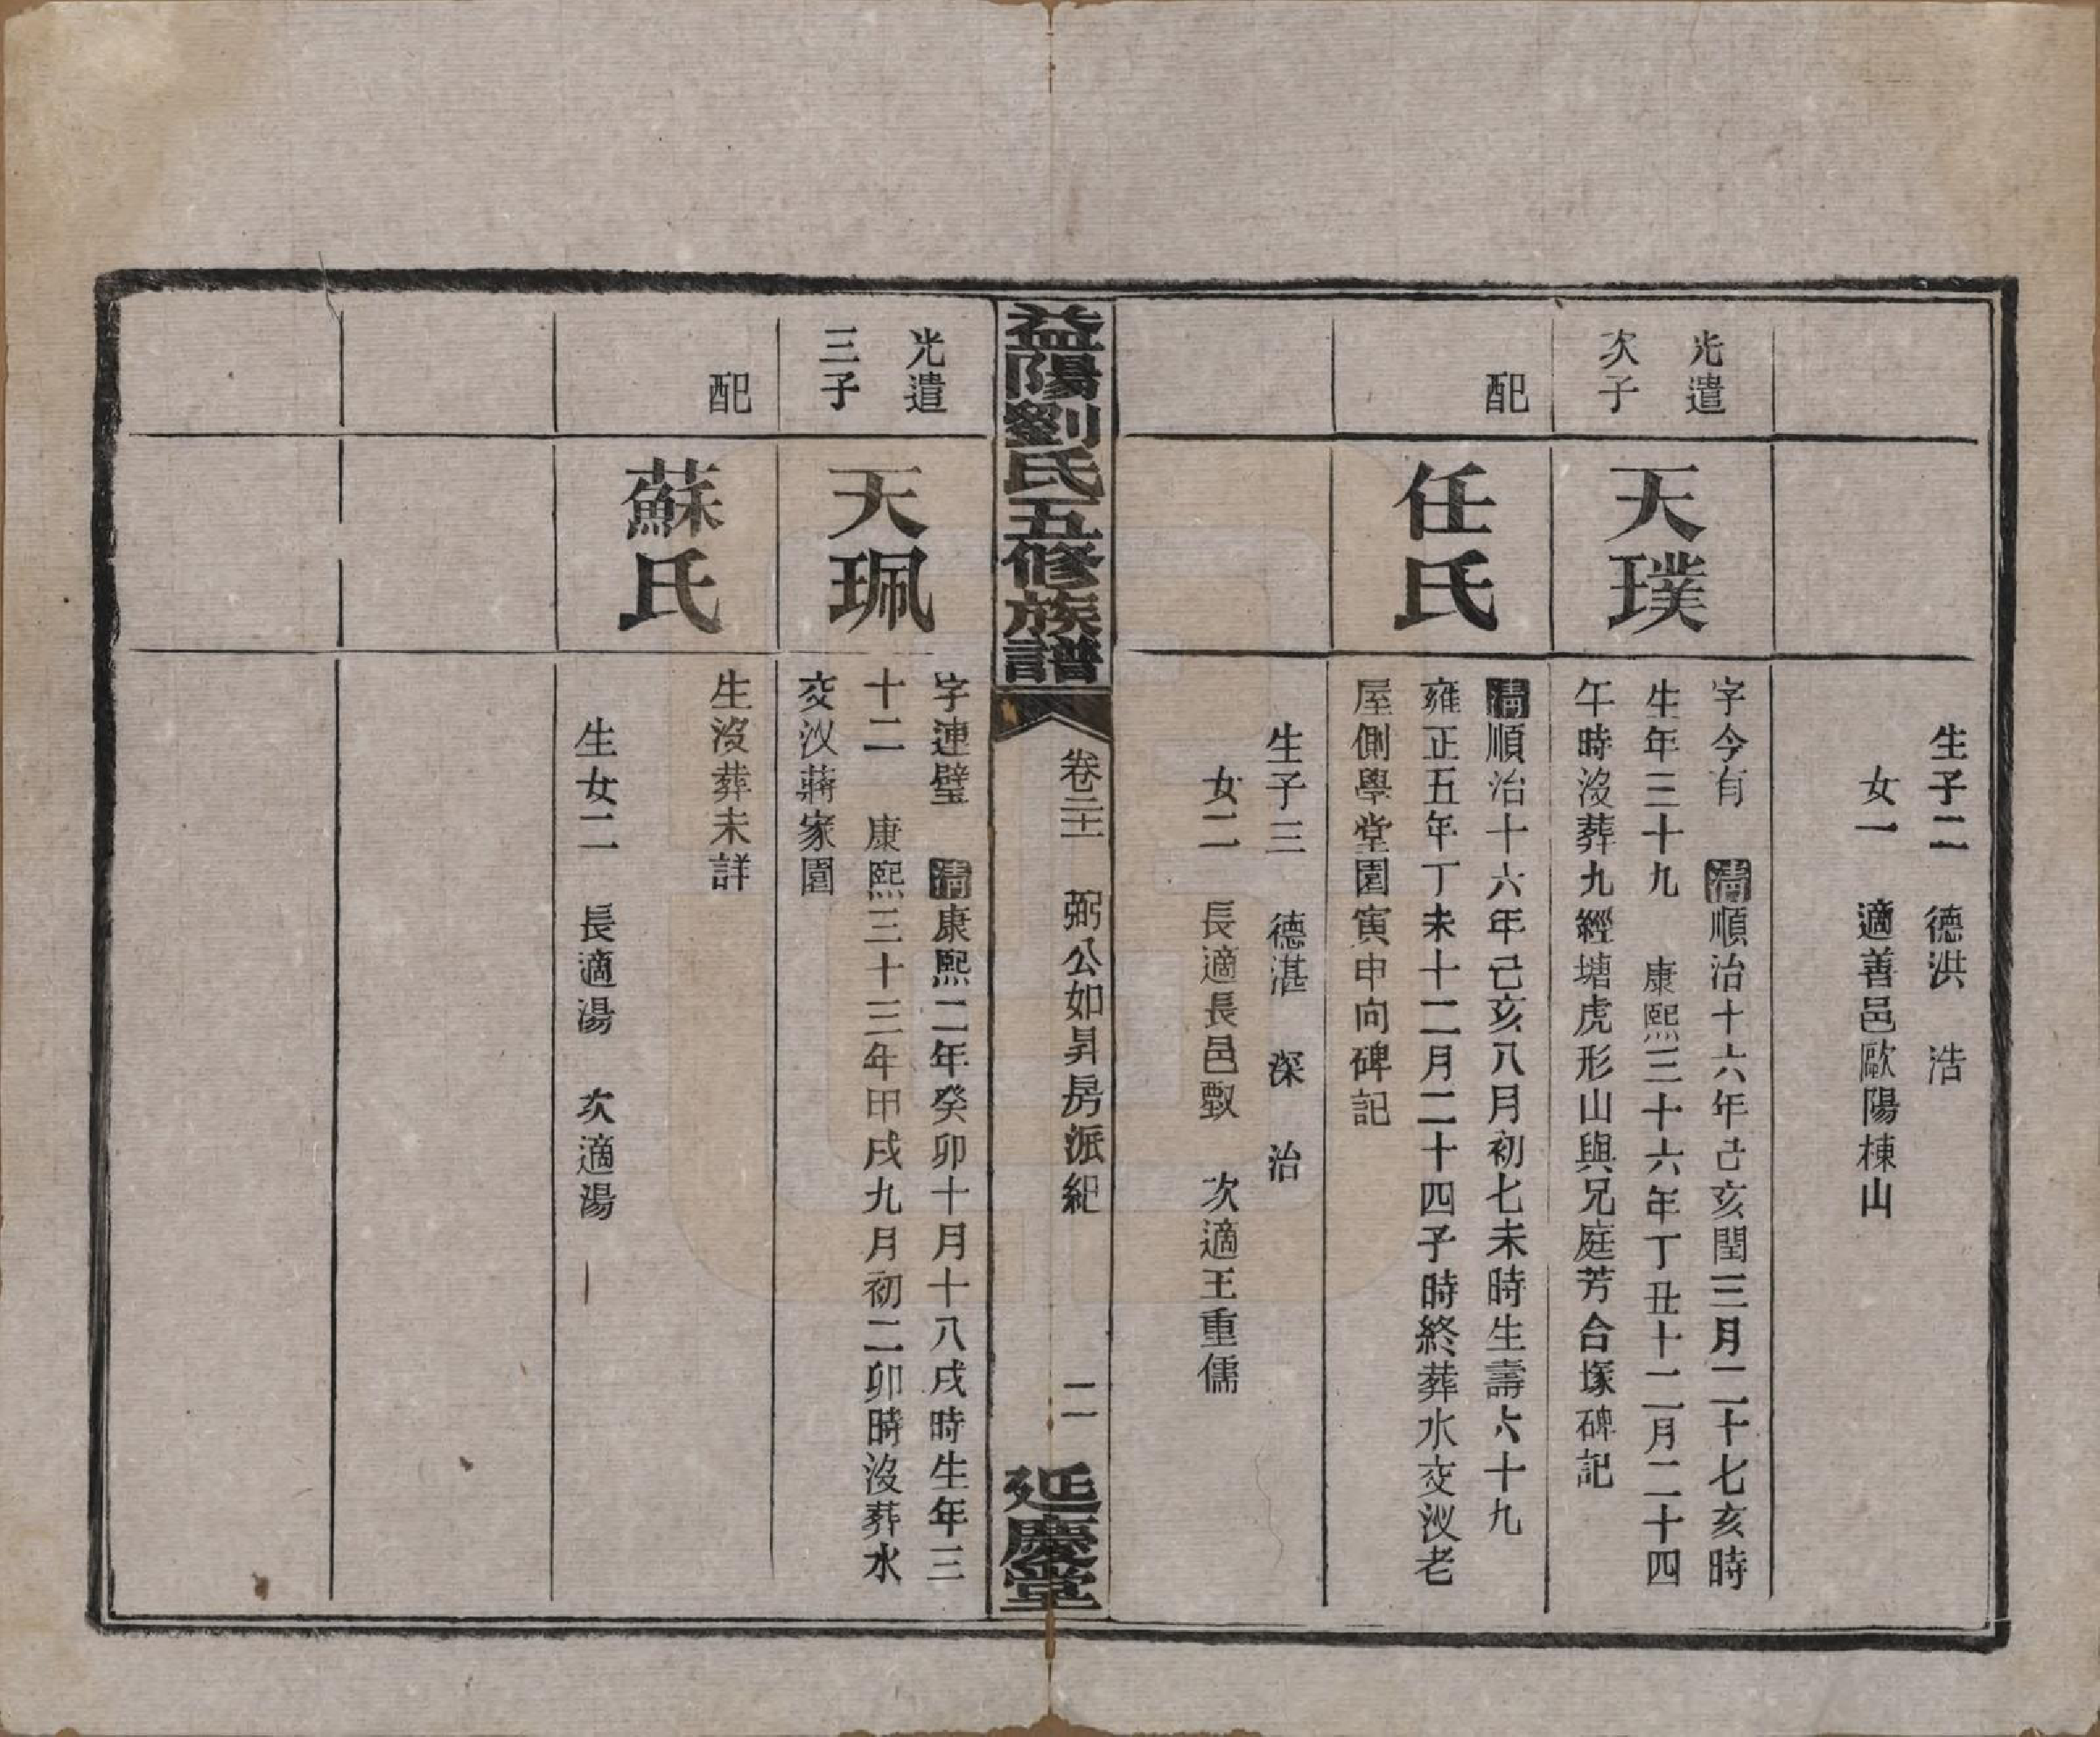 生子二 德洪 浩
女一 適善邑歐陽棟山
光遣
次子
天璞
字今有 清順治十六年己亥閏三月二十七亥時
生年三十九 康熙三十六年丁丑十二月二十四
午時沒葬九經塘虎形山與兄庭芳合塚碑記
配
任氏
清順治十六年己亥八月初七未時生壽六十九
雍正五年丁未十二月二十四子時終葬水交汊老
屋側學堂園寅申向碑記
生子三 德湛 深 治
女二 長適長邑 次適王重儒
益陽劉氏五修族譜
卷二十 弼公如昇房派紀
二
延慶堂
光遣
三子
天珮
字連璧 清康熙二年癸卯十月十八戌時生年三
十二 康熙三十三年甲戌九月初二卯時沒葬水
交汊蔣家園
配
蘇氏
生沒葬未詳
生女二 長適湯 次適湯